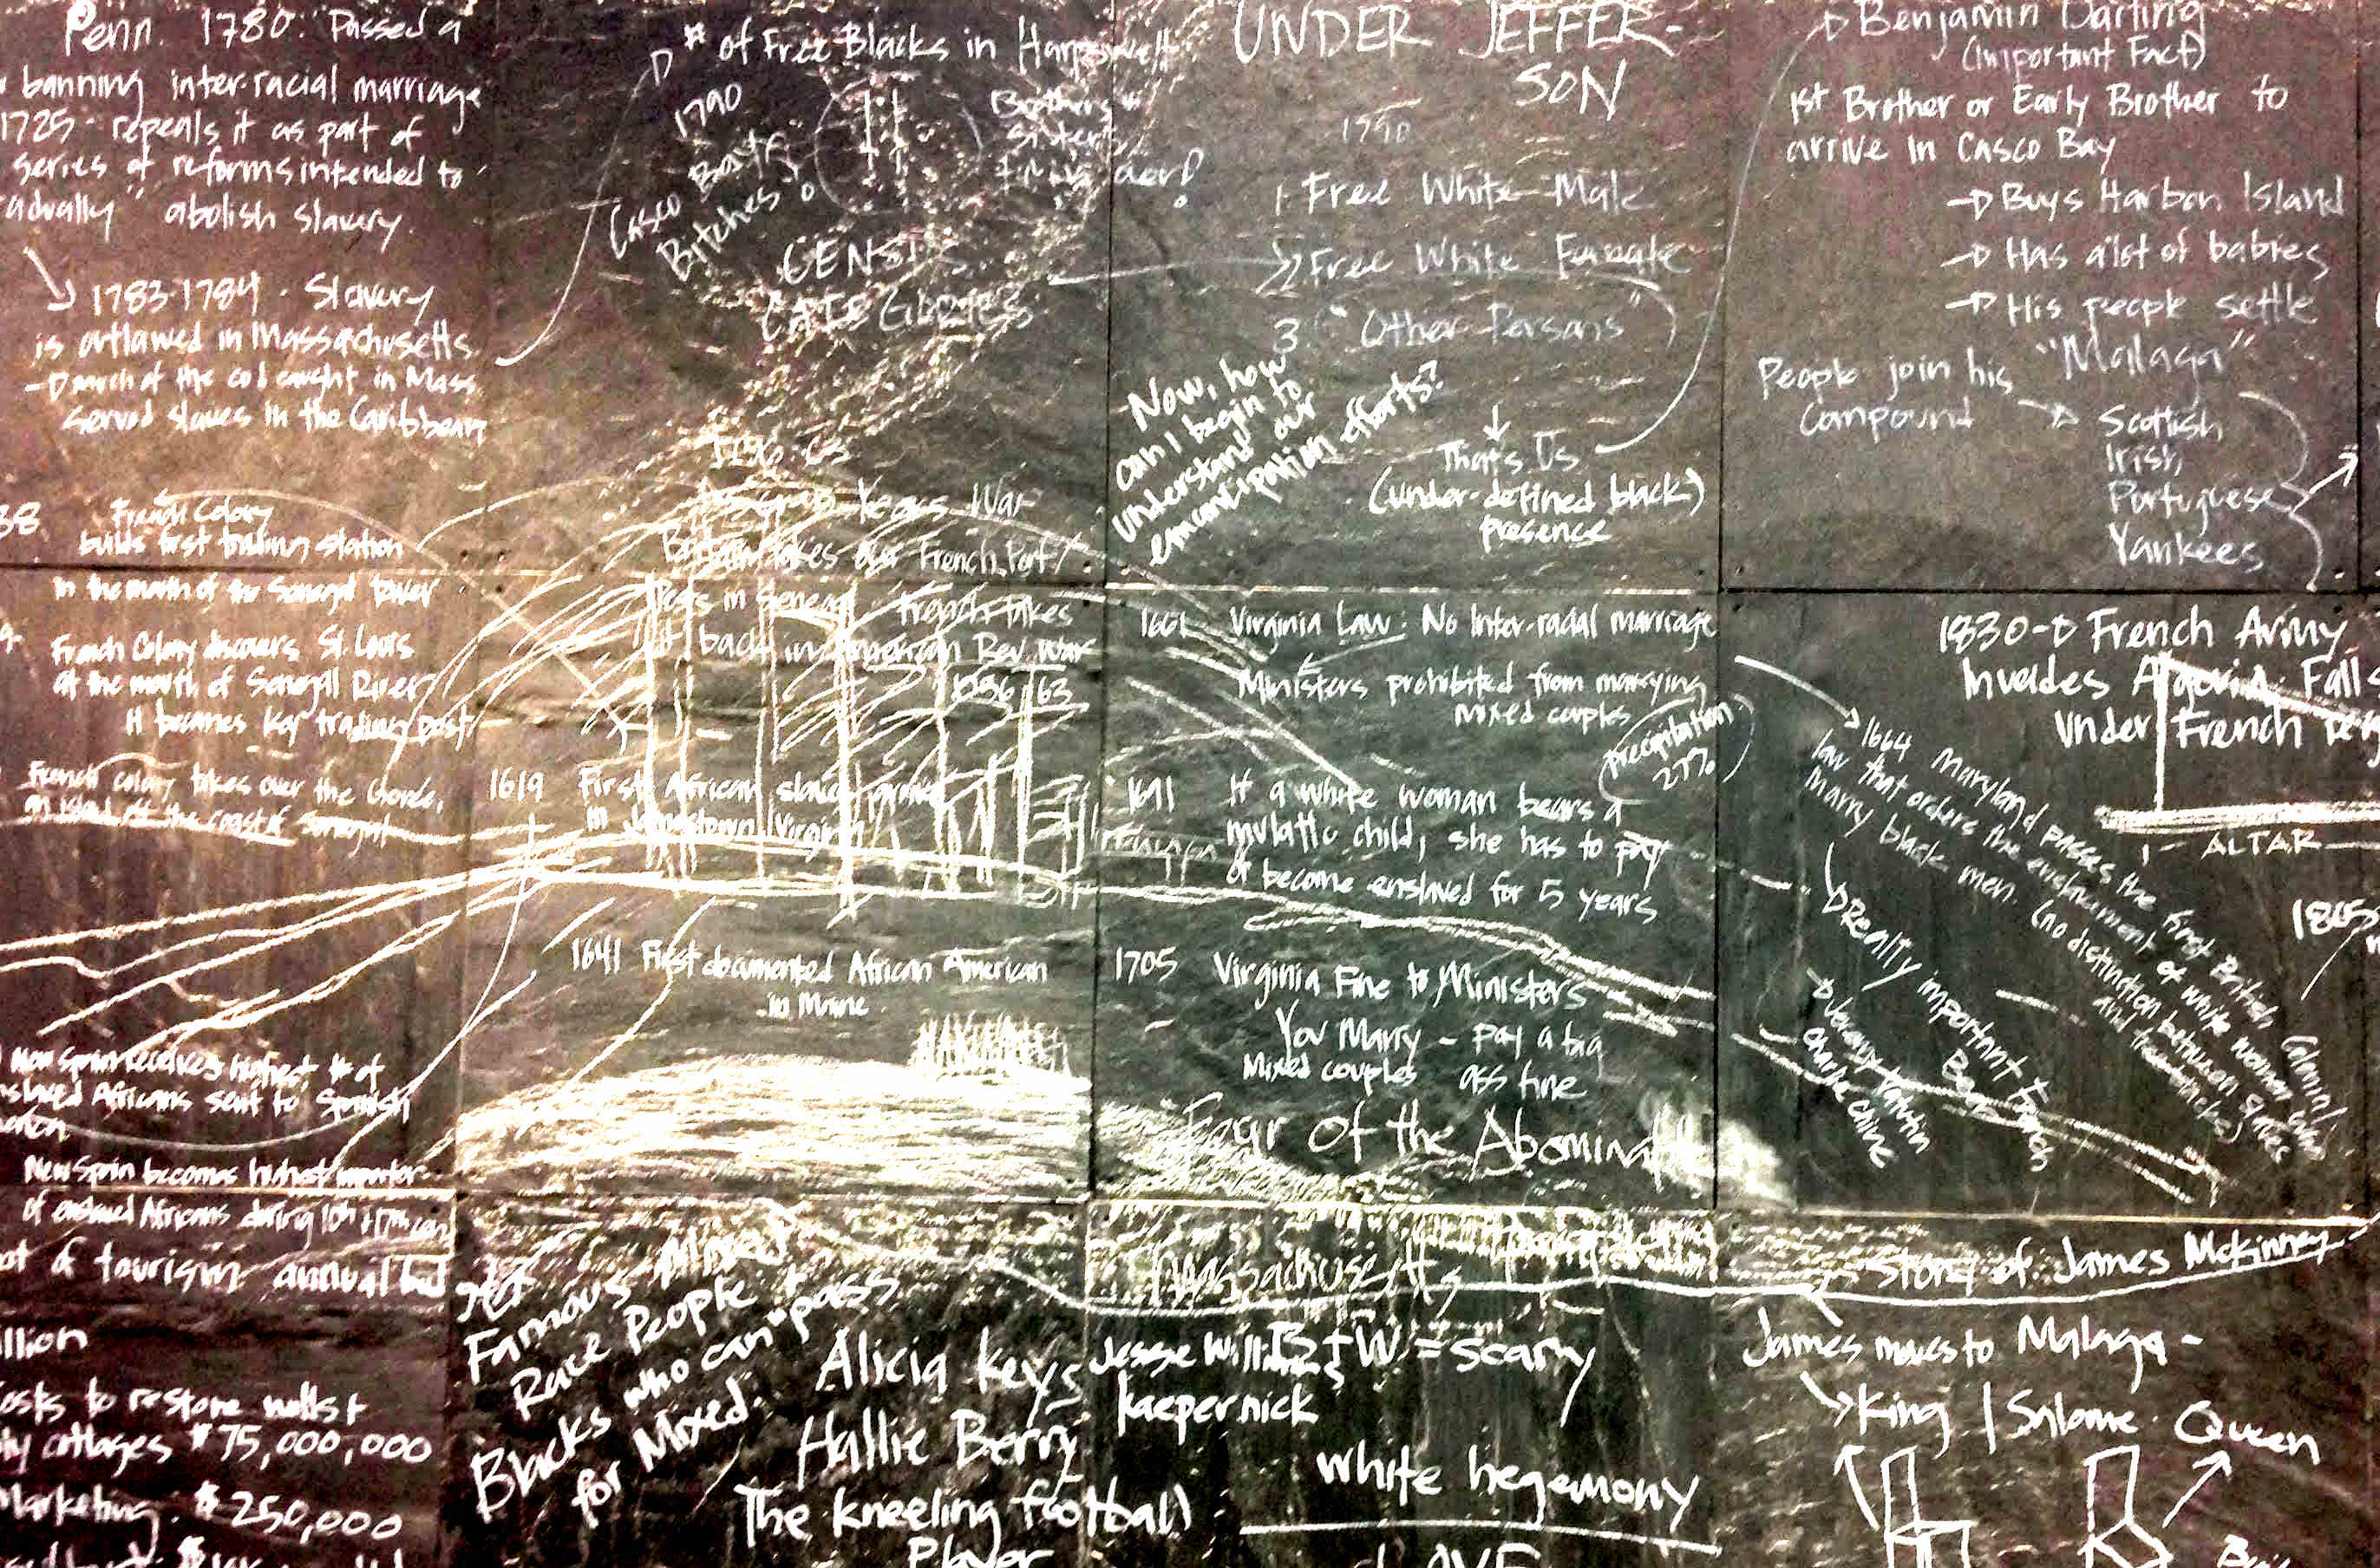 Penn. 1780: Passed a
banning inter-racial marriage
1725 - repeals it as part of
series of reforms intended to
"adually" abolish slavery.
1783-1784 - Slavery
is outlawed in Massachusetts
much of the cod caught in Mass.
served slaves in the Caribbean
38
French Colony
builds first trading station
in the mouth of the Senegal River
French Colony discovers St. Louis
at the mouth of Senegal River
It becomes key trading post
French colony takes over the Goree,
an island off the coast of Senegal
New Spain receives highest # of
slaved Africans sent to Spanish
New Spain becomes highest importer
of enslaved Africans during 16th + 17th cen
ot of tourism annual
illion
osts to restore
cottages $75,000,000
Marketing: $250,000
# of Free Blacks in Harpswell
1790
Casco Bay
Bitches
Brothers +
Sisters
CENSUS
CATEGORIES
1756-63
Years War
Britain takes over French Fort/
Posts in Senegal French takes
it back in American Rev. War
1756-63
1619 First African slaves arrive
in Jamestown, Virginia
1641 First documented African American
in Maine
Famous Mixed
Race People +
Blacks who can pass
for Mixed:
Alicia Keys
Hallie Berry
The kneeling football
Player
UNDER JEFFER-
SON
1790
1. Free White Male
2. Free White Female
3. "Other Persons"
That's Us
(under-defined black)
presence
Now, how
can I begin to
understand our
emancipation efforts?
1661 Virginia Law: No Inter-racial marriage
Ministers prohibited from marrying
mixed couples
precipitation
27%
1691 If a white woman bears a
mulatto child, she has to pay
or become enslaved for 5 years
MALAGA
1705 Virginia Fine to Ministers
You Marry - pay a big
Mixed couples ass fine
Fear of the Abomina
Massachusetts
Jesse Williams
kaepernick
B + W = scary
white hegemony
LOVE
Benjamin Darling
(Important Fact)
1st Brother or Early Brother to
arrive in Casco Bay
Buys Harbor Island
Has a lot of babies
His people settle
"Malaga"
People join his
compound
Scottish
Irish,
Portuguese
Yankees
1830 French Army
Invades Algeria. Falls
under French
ALTAR
1664 Maryland passes the first British Colonial
law that orders the enslavement of white women who
marry black men. (no distinction between slaves
and free blacks)
Really important French
Charlie
Story of James McKinney
James moves to Malaga -
King / Salome Queen